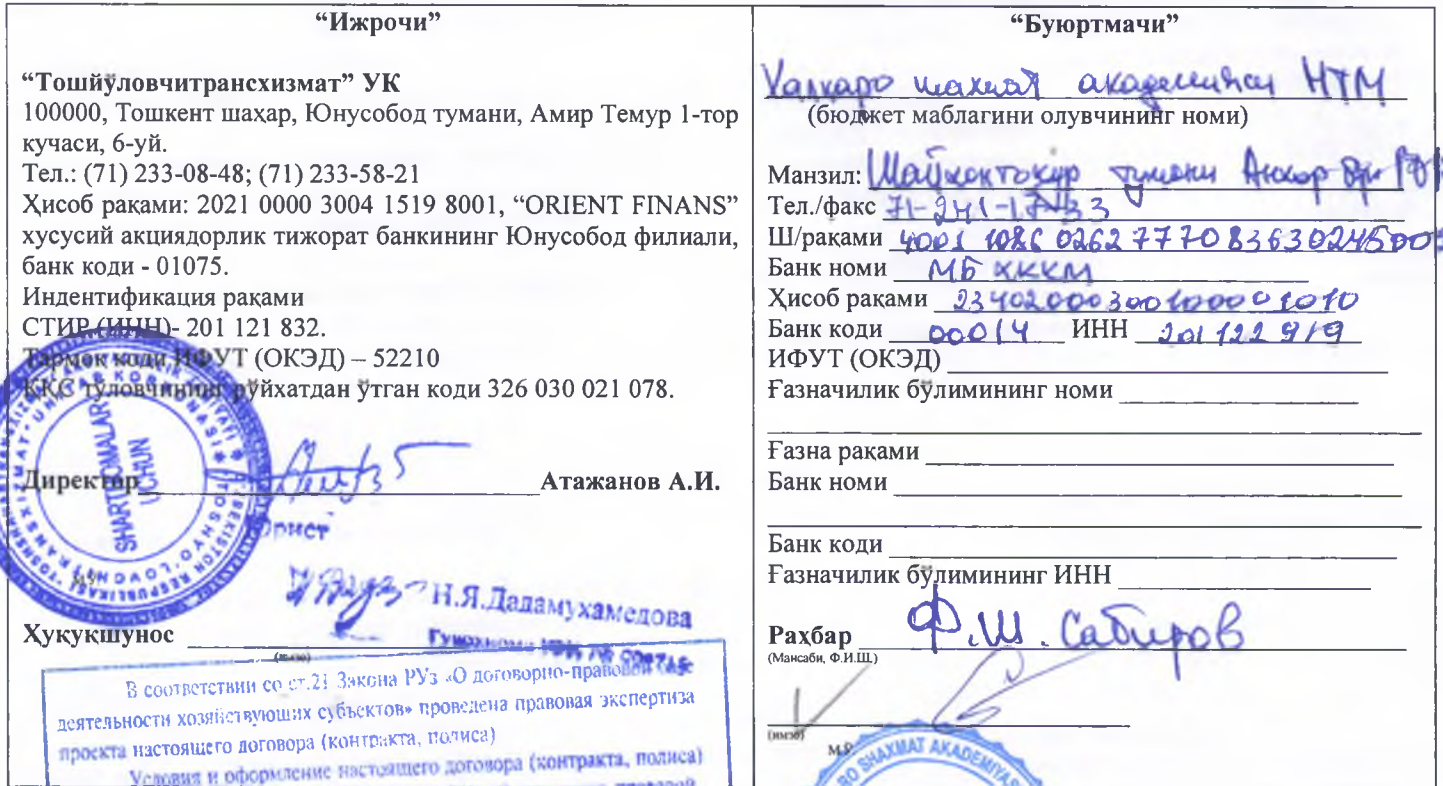 “Ижрочи”
“Тошйўловчитрансхизмат” УК
100000, Тошкент шаҳар, Юнусобод тумани, Амир Темур 1-тор
кучаси, 6-уй.
Тел.: (71) 233-08-48; (71) 233-58-21
Ҳисоб рақами: 2021 0000 3004 1519 8001, “ORIENT FINANS”
хусусий акциядорлик тижорат банкининг Юнусобод филиали,
банк коди - 01075.
Индентификация рақами
СТИР (ИНН)- 201 121 832.
Тармоқ коди ИФУТ (ОКЭД) – 52210
ҚҚС тўловчининг рўйхатдан ўтган коди 326 030 021 078.
SHARTNOMALAR
UCHUN
Директор Атажанов А.И.
Юрист
Н.Я.Даламухамедова
Ҳуқуқшунос
(имзо)
В соответствии со ст.21 Закона РУз «О договорно-правовой
деятельности хозяйствующих субъектов» проведена правовая экспертиза
проекта настоящего договора (контракта, полиса)
Условия и оформление настоящего договора (контракта, полиса)
“Буюртмачи”
Халқаро шахмат академияси НТМ
(бюджет маблағини олувчининг номи)
Манзил: Шайхонтохур тумани Анхор
Тел./факс 71-241-17-33
Ш/рақами
Банк номи МБ ҲККМ
Ҳисоб рақами 23402000300100001010
Банк коди 00014 ИНН 201 122 919
ИФУТ (ОКЭД)
Ғазначилик бўлимининг номи
Ғазна рақами
Банк номи
Банк коди
Ғазначилик бўлимининг ИНН
Раҳбар Ф.Ш. Сабиров
(Мансаби, Ф.И.Ш.)
(имзо)
М.Ў.
SHAXMAT AKADEMIYASI